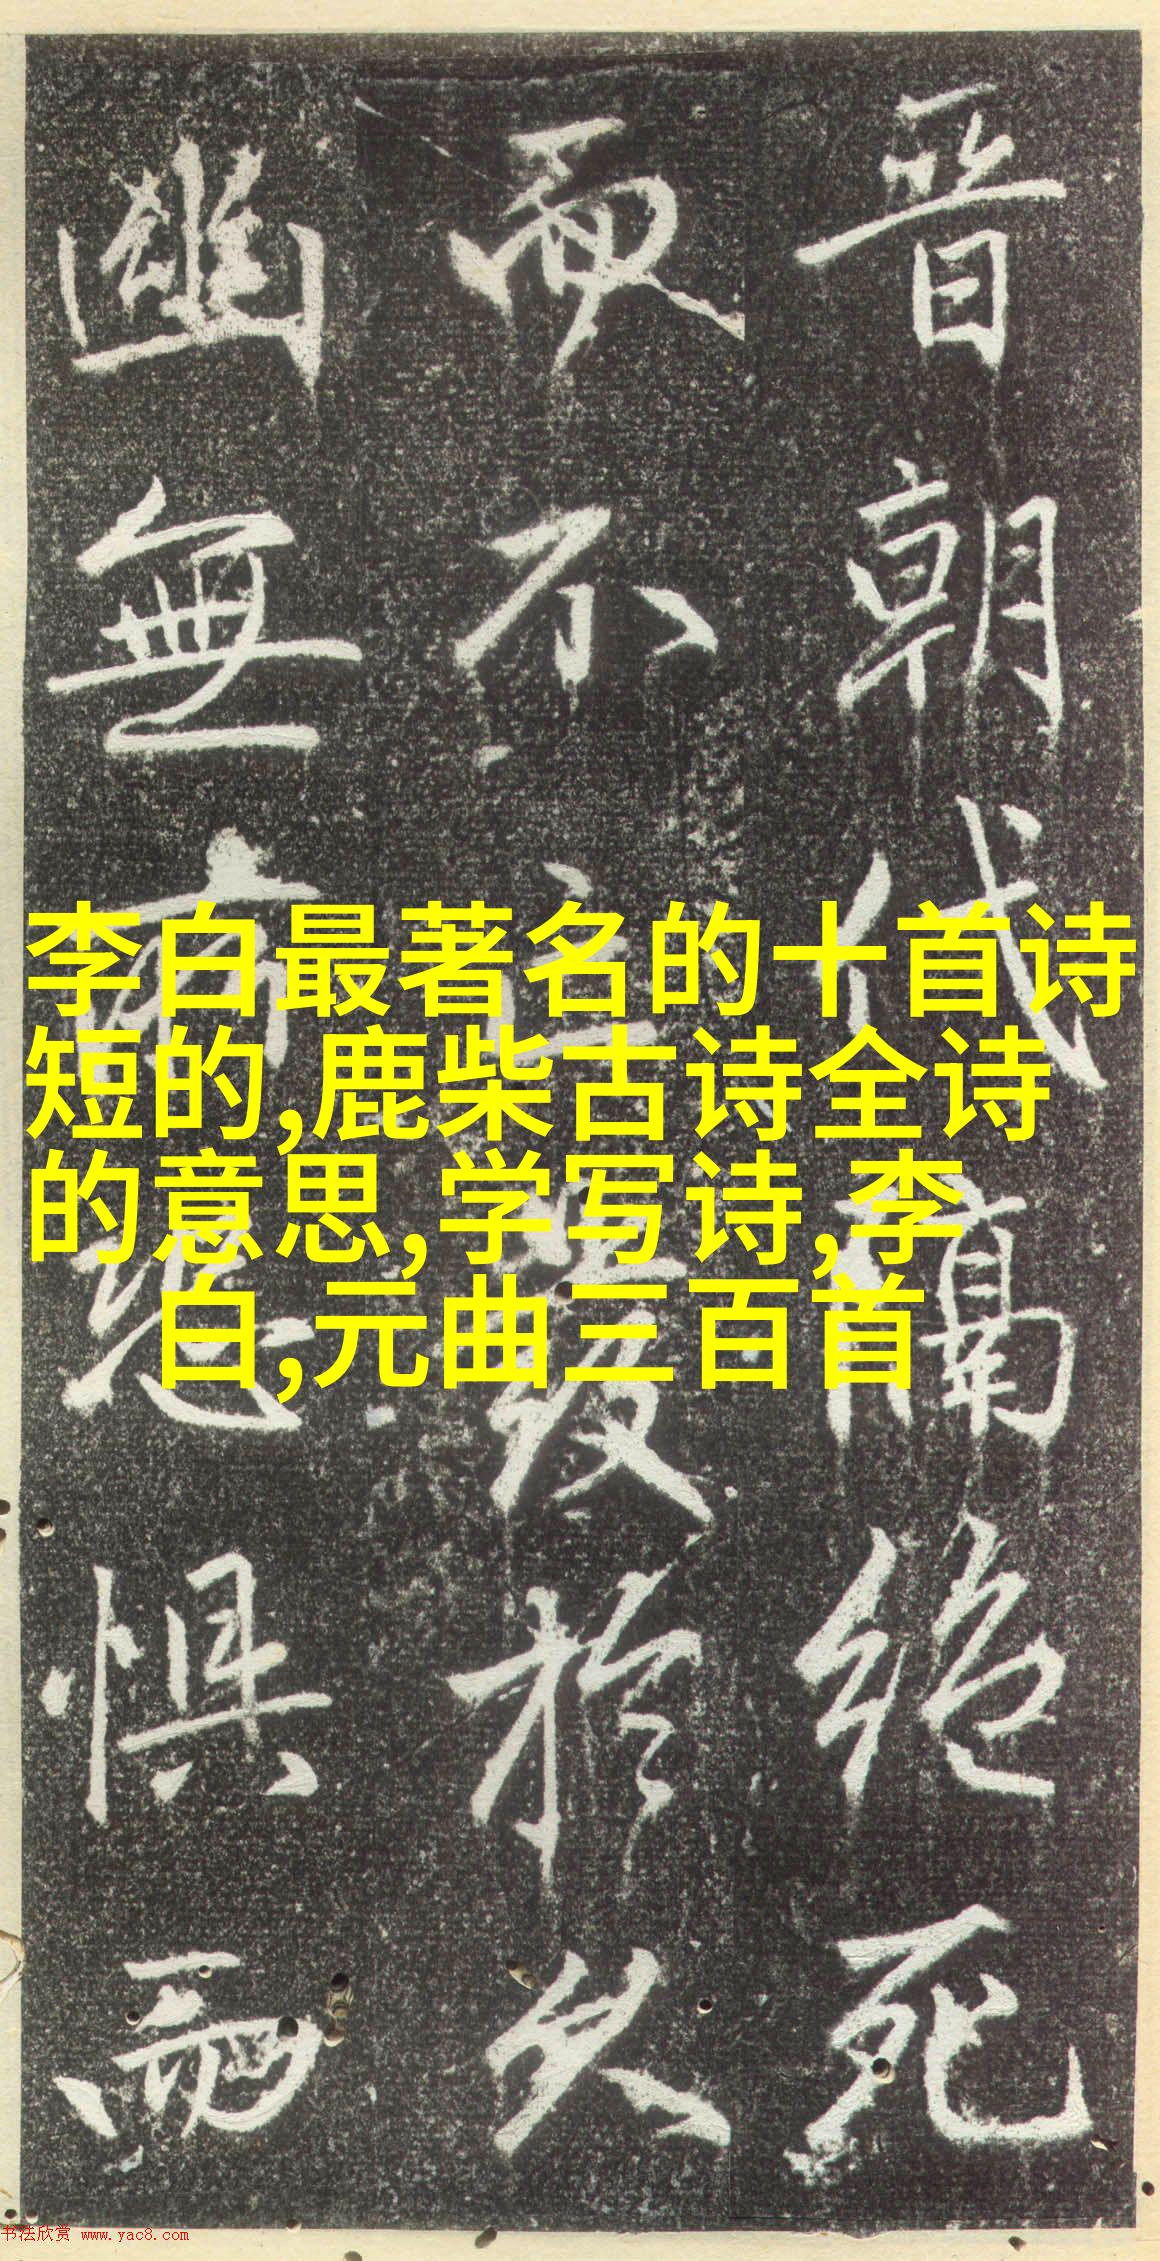 李白最著名的十首诗
短的,鹿柴古诗全诗
的意思,学写诗,李
白,元曲三百首
晋朝代隔絶死
而不發於久
幽無惧而
书法欣赏 www.yac8.com